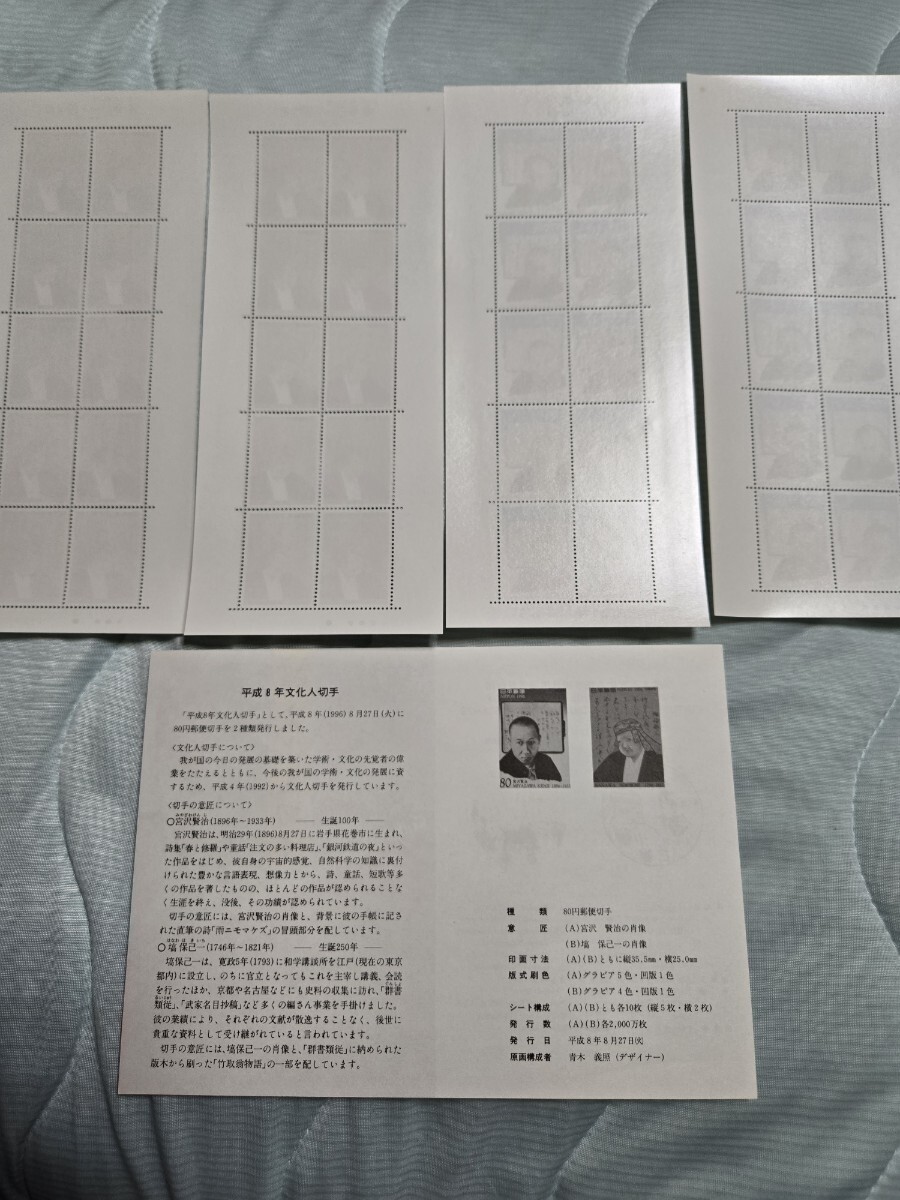 平成8年文化人切手
「平成8年文化人切手」として、平成8年(1996)8月27日(火)に
80円郵便切手を2種類発行しました。
〈文化人切手について〉
我が国の今日の発展の基礎を築いた学術・文化の先覚者の偉
業をたたえるとともに、今後の我が国の学術・文化の発展に資
するため、平成4年(1992)から文化人切手を発行しています。
〈切手の意匠について〉
みやざわけんじ
○宮沢賢治(1896年~1933年) ―― 生誕100年 ――
宮沢賢治は、明治29年(1896)8月27日に岩手県花巻市に生まれ、
詩集「春と修羅」や童話「注文の多い料理店」、「銀河鉄道の夜」といっ
た作品をはじめ、彼自身の宇宙的感覚、自然科学の知識に裏付
けられた豊かな言語表現、想像力とから、詩、童話、短歌等多
くの作品を著したものの、ほとんどの作品が認められることな
く生涯を終え、没後、その功績が認められています。
切手の意匠には、宮沢賢治の肖像と、背景に彼の手帳に記さ
れた直筆の詩「雨ニモマケズ」の冒頭部分を配しています。
はなわ ほ き いち
○塙 保己一(1746年~1821年) ―― 生誕250年 ――
塙保己一は、寛政5年(1793)に和学講談所を江戸(現在の東京
都内)に設立し、のちに官立となってもこれを主宰し講義、会読
を行ったほか、京都や名古屋などにも史料の収集に訪れ、「群書
類従」、「武家名目抄稿」など多くの編さん事業を手掛けました。
彼の業績により、それぞれの文献が散逸することなく、後世に
貴重な資料として受け継がれていると言われています。
切手の意匠には、塙保己一の肖像と、「群書類従」に納められた
版木から刷った「竹取翁物語」の一部を配しています。
日本郵便
80
種 類 80円郵便切手
意 匠 (A)宮沢 賢治の肖像
(B)塙 保己一の肖像
印面寸法 (A)(B)ともに縦35.5mm・横25.0mm
版式刷色 (A)グラビア5色・凹版1色
(B)グラビア4色・凹版1色
シート構成 (A)(B)とも各10枚(縦5枚・横2枚)
発 行 数 (A)(B)各2,000万枚
発 行 日 平成8年8月27日(火)
原画構成者 青木 義照(デザイナー)